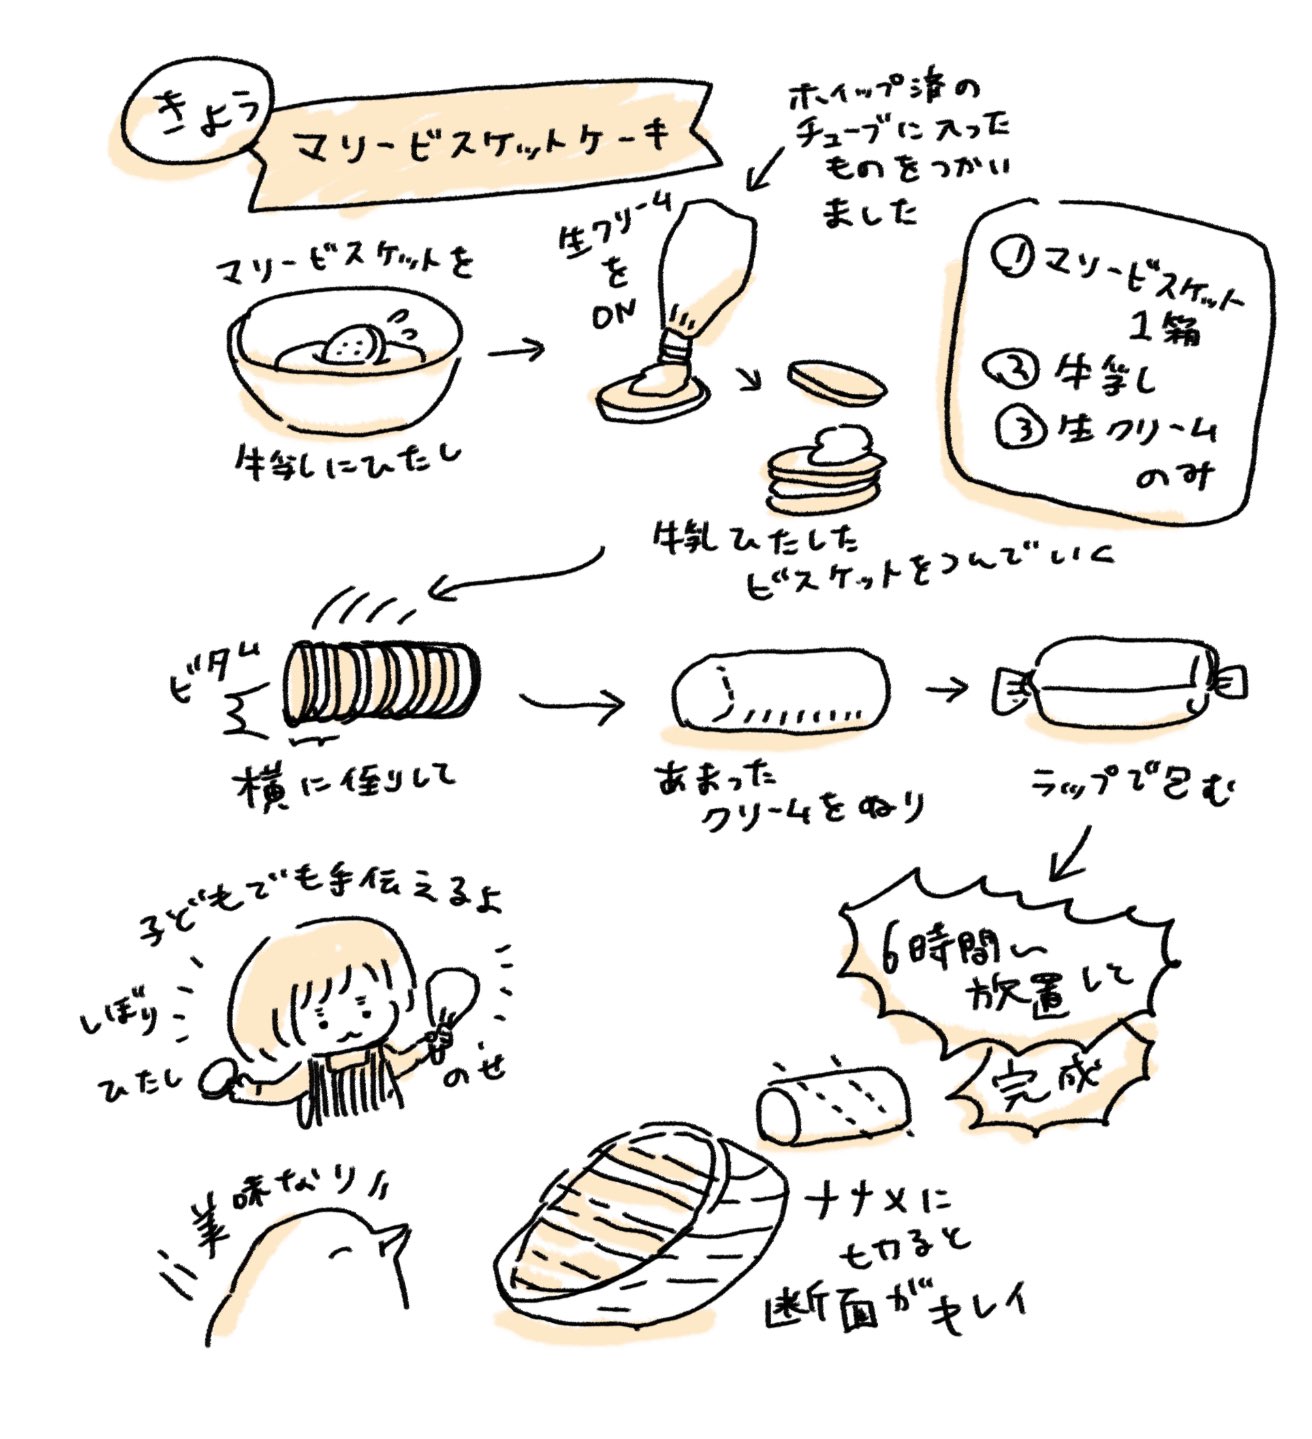 きょう
マリービスケットケーキ
ホイップ済の
チューブに入った
ものをつかい
ました
① マリービスケット
1箱
② 牛乳
③ 生クリーム
のみ
マリービスケットを
牛乳にひたし
生クリーム
を
ON
牛乳ひたした
ビスケットをつんでいく
ビタム
横に倒して
あまった
クリームをぬり
ラップで包む
6時間
放置して
完成
子どもでも手伝えるよ
しぼり
ひたし
のせ
ナナメに
切ると
断面がキレイ
美味なり〃